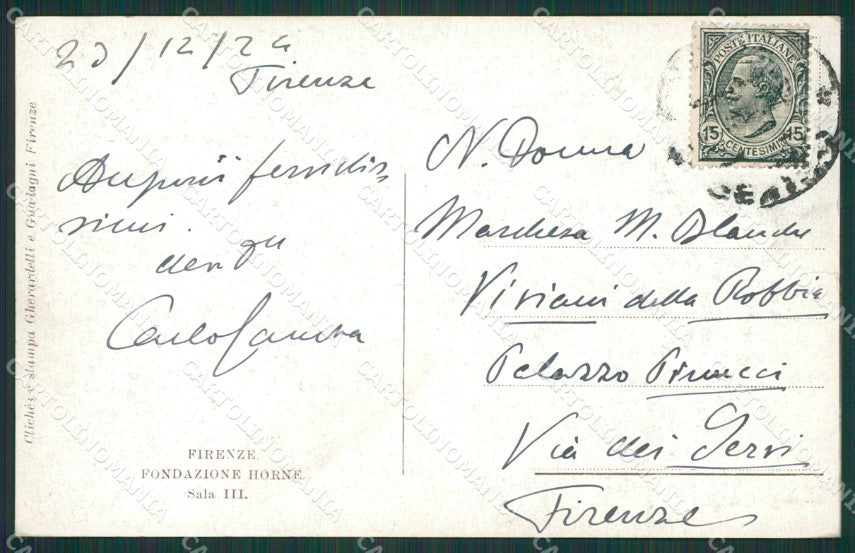 23/12/24
Firenze
Auguri fervidis
simi.
dev mo
N. Donna
Marchesa M. Blanche
Viviani della Robbia
Palazzo Pucci
Via dei Servi
Firenze
POSTE ITALIANE
15 15
CENTESIMI
FIRENZE
FONDAZIONE HORNE
Sala III.
Clichés e stampa Gherardelli e Guadagni Firenze
CARTOLINOMANIA